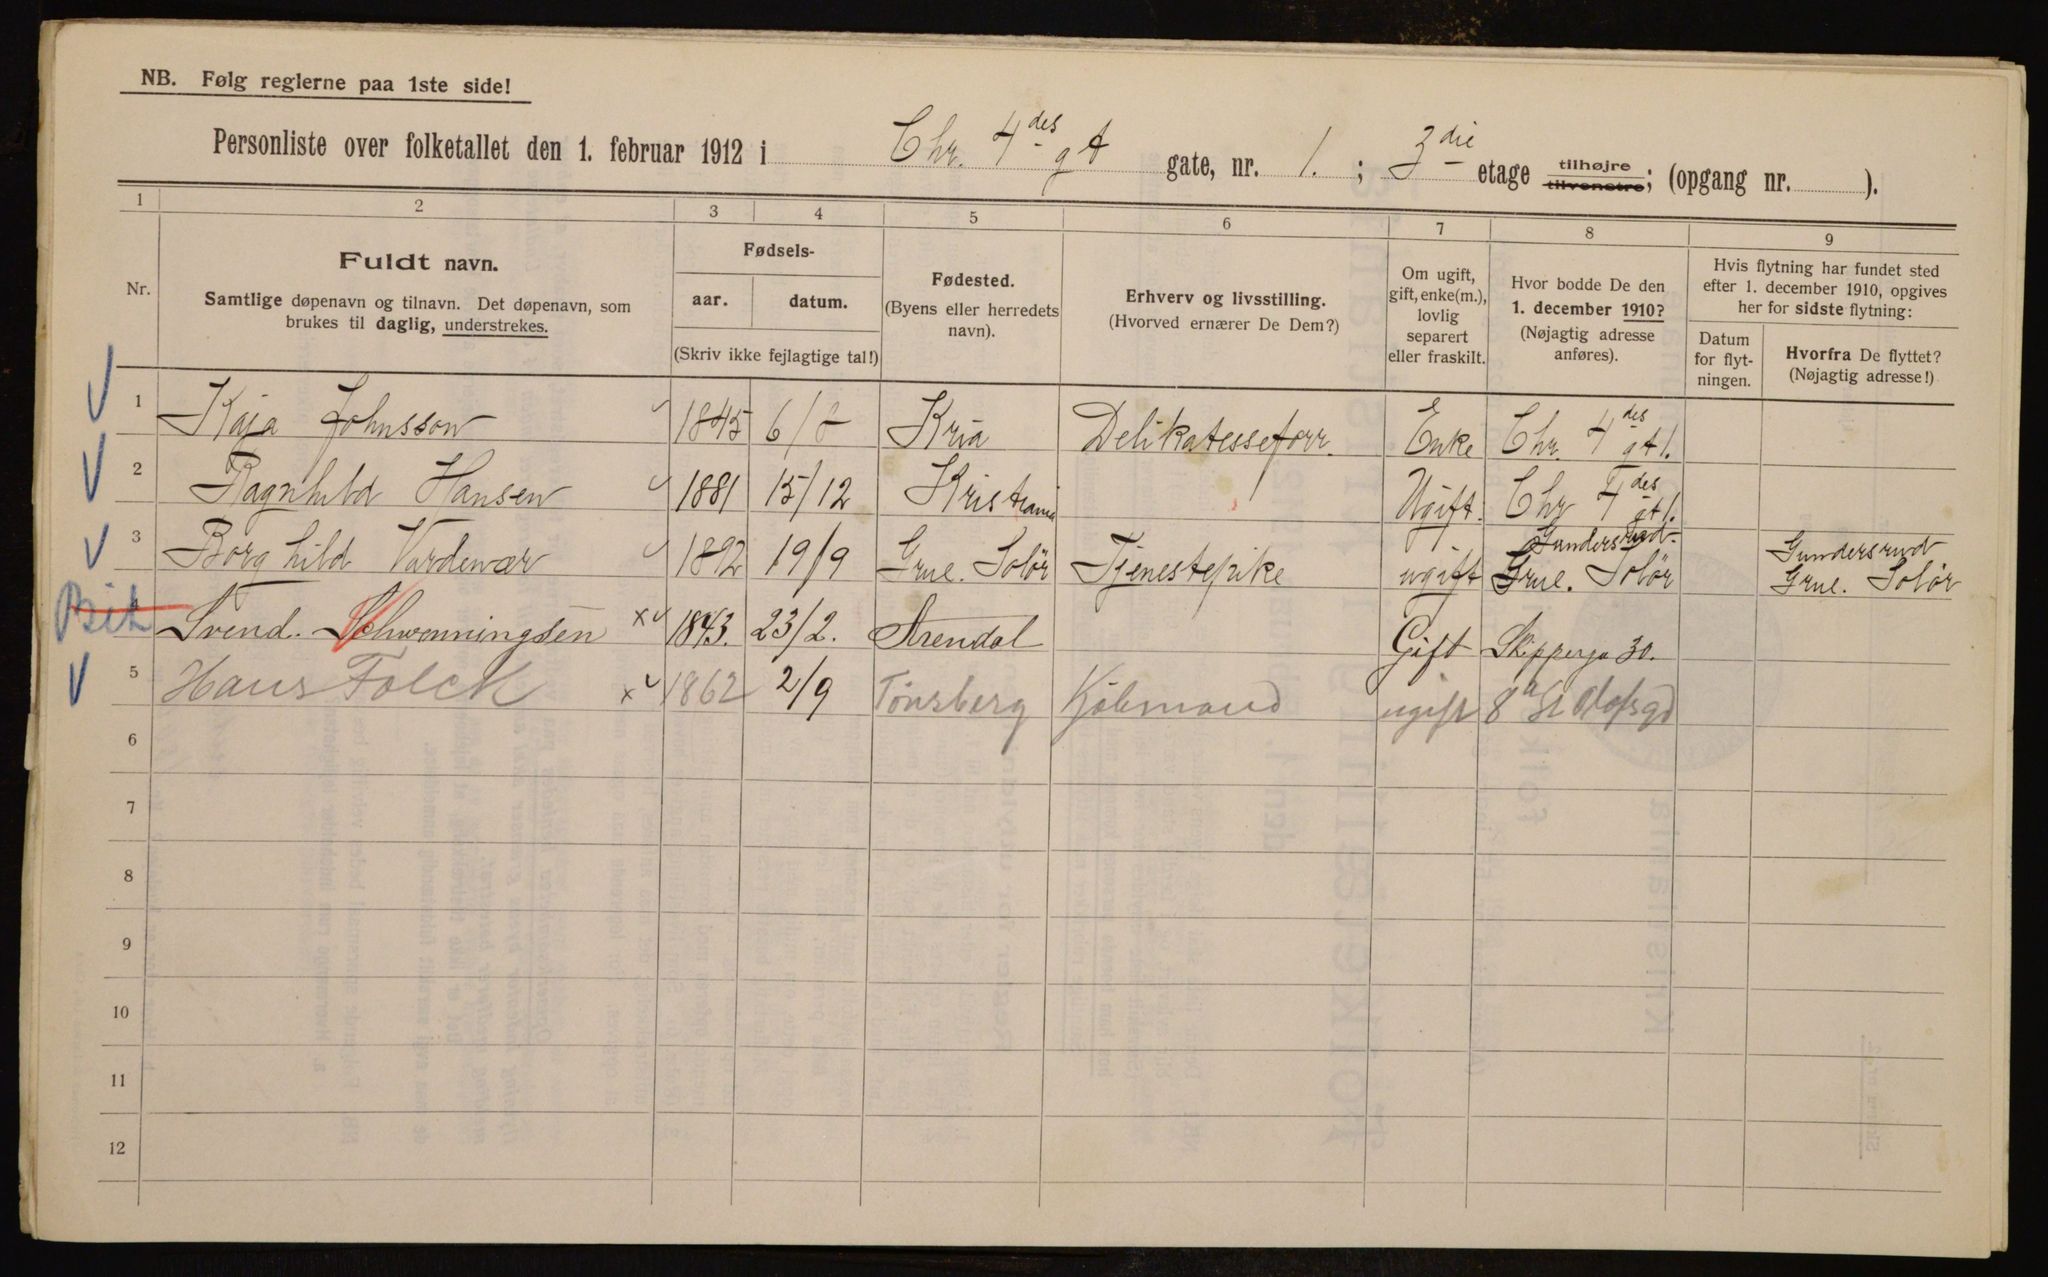 NB. Følg reglerne paa 1ste side!
Personliste over folketallet den 1. februar 1912 i Chr. 4des gt gate, nr. 1. ; 3die etage tilhøjre tilvenstre; (opgang nr. ).
1 2 3 4 5 6 7 8 9
Nr.
Fuldt navn.
Samtlige døpenavn og tilnavn. Det døpenavn, som
brukes til daglig, understrekes.
Fødsels-
aar. datum.
(Skriv ikke fejlagtige tal!)
Fødested.
(Byens eller herredets
navn).
Erhverv og livsstilling.
(Hvorved ernærer De Dem?)
Om ugift,
gift, enke(m.),
lovlig
separert
eller fraskilt.
Hvor bodde De den
1. december 1910?
(Nøjagtig adresse
anføres).
Hvis flytning har fundet sted
efter 1. december 1910, opgives
her for sidste flytning:
Datum
for flyt-
ningen.
Hvorfra De flyttet?
(Nøjagtig adresse!)
1 Kaja Johnsson 1845 6/8 Kria Delikatesseforr. Enke Chr. 4des gt 1.
2 Ragnhild Hansen 1881 15/12 Kristiania Ugift. Chr 4des gt 1.
3 Borghild Vardevær 1892 19/9 Grue. Solør Tjenestepike ugift Gundersrud. Grue. Solør Gundersrud Grue. Solør
4 Svend. Schwenningsen 1843. 23/2. Arendal Gift Skipperga 30.
5 Hans Folck 1862 2/9 Tønsberg Kjøbmand ugift 8a St Olafsgd
6
7
8
9
10
11
12